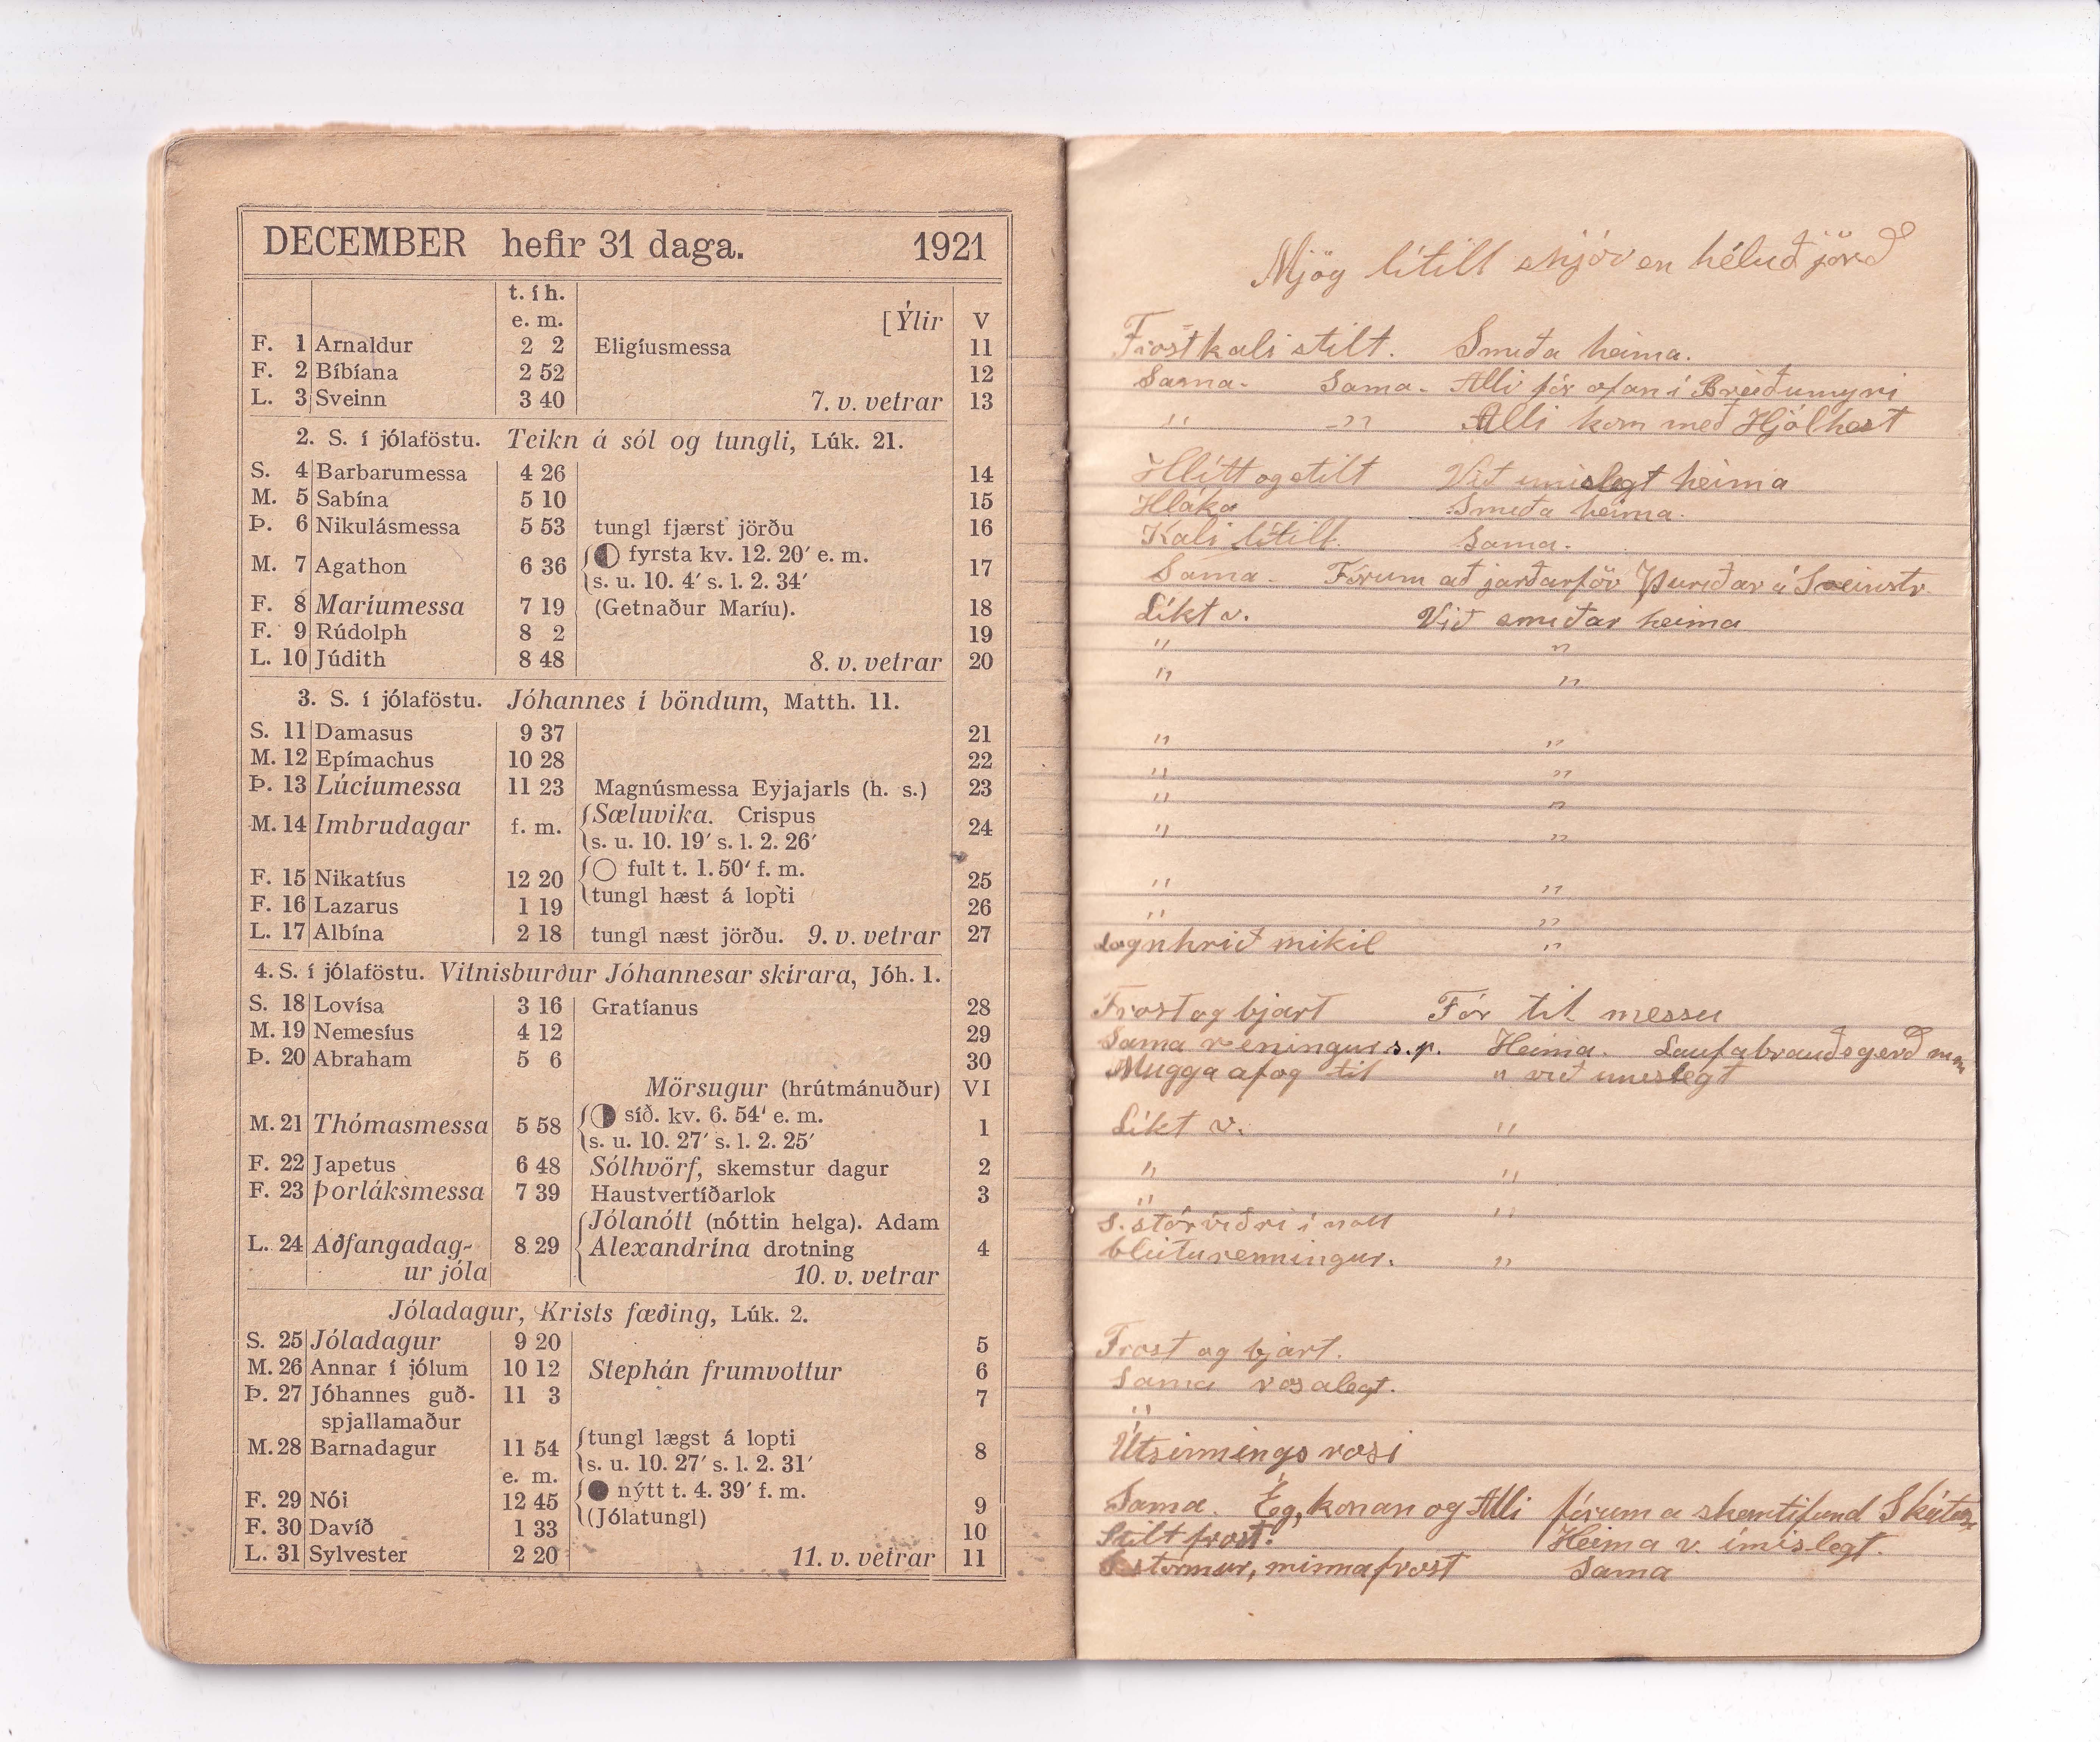 DECEMBER hefir 31 daga. 1921
t. í h.
e. m. [Ýlir V
F. 1 Arnaldur 2 2 Eligíusmessa 11
F. 2 Bíbíana 2 52 12
L. 3 Sveinn 3 40 7. v. vetrar 13
2. S. í jólaföstu. Teikn á sól og tungli, Lúk. 21.
S. 4 Barbarumessa 4 26 14
M. 5 Sabína 5 10 15
Þ. 6 Nikulásmessa 5 53 tungl fjærst jörðu 16
M. 7 Agathon 6 36 fyrsta kv. 12. 20′ e. m. 17
s. u. 10. 4′ s. l. 2. 34′
F. 8 Maríumessa 7 19 (Getnaður Maríu). 18
F. 9 Rúdolph 8 2 19
L. 10 Júdith 8 48 8. v. vetrar 20
3. S. í jólaföstu. Jóhannes í böndum, Matth. 11.
S. 11 Damasus 9 37 21
M. 12 Epímachus 10 28 22
Þ. 13 Lúcíumessa 11 23 Magnúsmessa Eyjajarls (h. s.) 23
M. 14 Imbrudagar f. m. Sæluvika. Crispus 24
s. u. 10. 19′ s. l. 2. 26′
fult t. 1. 50′ f. m.
F. 15 Nikatíus 12 20 tungl hæst á lopti 25
F. 16 Lazarus 1 19 26
L. 17 Albína 2 18 tungl næst jörðu. 9. v. vetrar 27
4. S. í jólaföstu. Vitnisburður Jóhannesar skírara, Jóh. 1.
S. 18 Lovísa 3 16 Gratíanus 28
M. 19 Nemesíus 4 12 29
Þ. 20 Abraham 5 6 30
Mörsugur (hrútmánuður) VI
M. 21 Thómasmessa 5 58 síð. kv. 6. 54′ e. m. 1
s. u. 10. 27′ s. l. 2. 25′
F. 22 Japetus 6 48 Sólhvörf, skemstur dagur 2
F. 23 Þorláksmessa 7 39 Haustvertíðarlok 3
Jólanótt (nóttin helga). Adam
L. 24 Aðfangadag- 8 29 Alexandrína drotning 4
ur jóla 10. v. vetrar
Jóladagur, Krists fæðing, Lúk. 2.
S. 25 Jóladagur 9 20 5
M. 26 Annar í jólum 10 12 Stephán frumvottur 6
Þ. 27 Jóhannes guð- 11 3 7
spjallamaður
M. 28 Barnadagur 11 54 tungl lægst á lopti 8
s. u. 10. 27′ s. l. 2. 31′
e. m. nýtt t. 4. 39′ f. m.
F. 29 Nói 12 45 (Jólatungl) 9
F. 30 Davíð 1 33 10
L. 31 Sylvester 2 20 11. v. vetrar 11
Mjög lítill snjór en héluð jörð
Frostkali stilt. Smíða heima.
Sama. Sama. Alli fór ofan í Breiðumýri
" -" Alli kom með Hjólhest
Hlítt og stilt Við ímislegt heima
Hláka Smíða heima.
Kali lítill. Sama.
Sama. Fórum að jarðarför Þuríðar á Sveinstr.
Líkt v. Við smíðar heima
" "
" "
" "
" "
" "
" "
" "
" "
Lognhríð mikil "
Frost og bjart Fór til messu
Sama reningur s.p. Heima. Laufabrauðsgerð
Mugga af og til " við ímislegt
Líkt v. "
" "
" "
S. stórviðri í nótt
bleiturenningur. "
Frost og bjart.
Sama rosalegt.
"
Útsinnings rosi
Sama. Ég, konan og Alli fórum a skemtifund
Stilt frost. Heima v. ímislegt.
S stormur, minna frost Sama